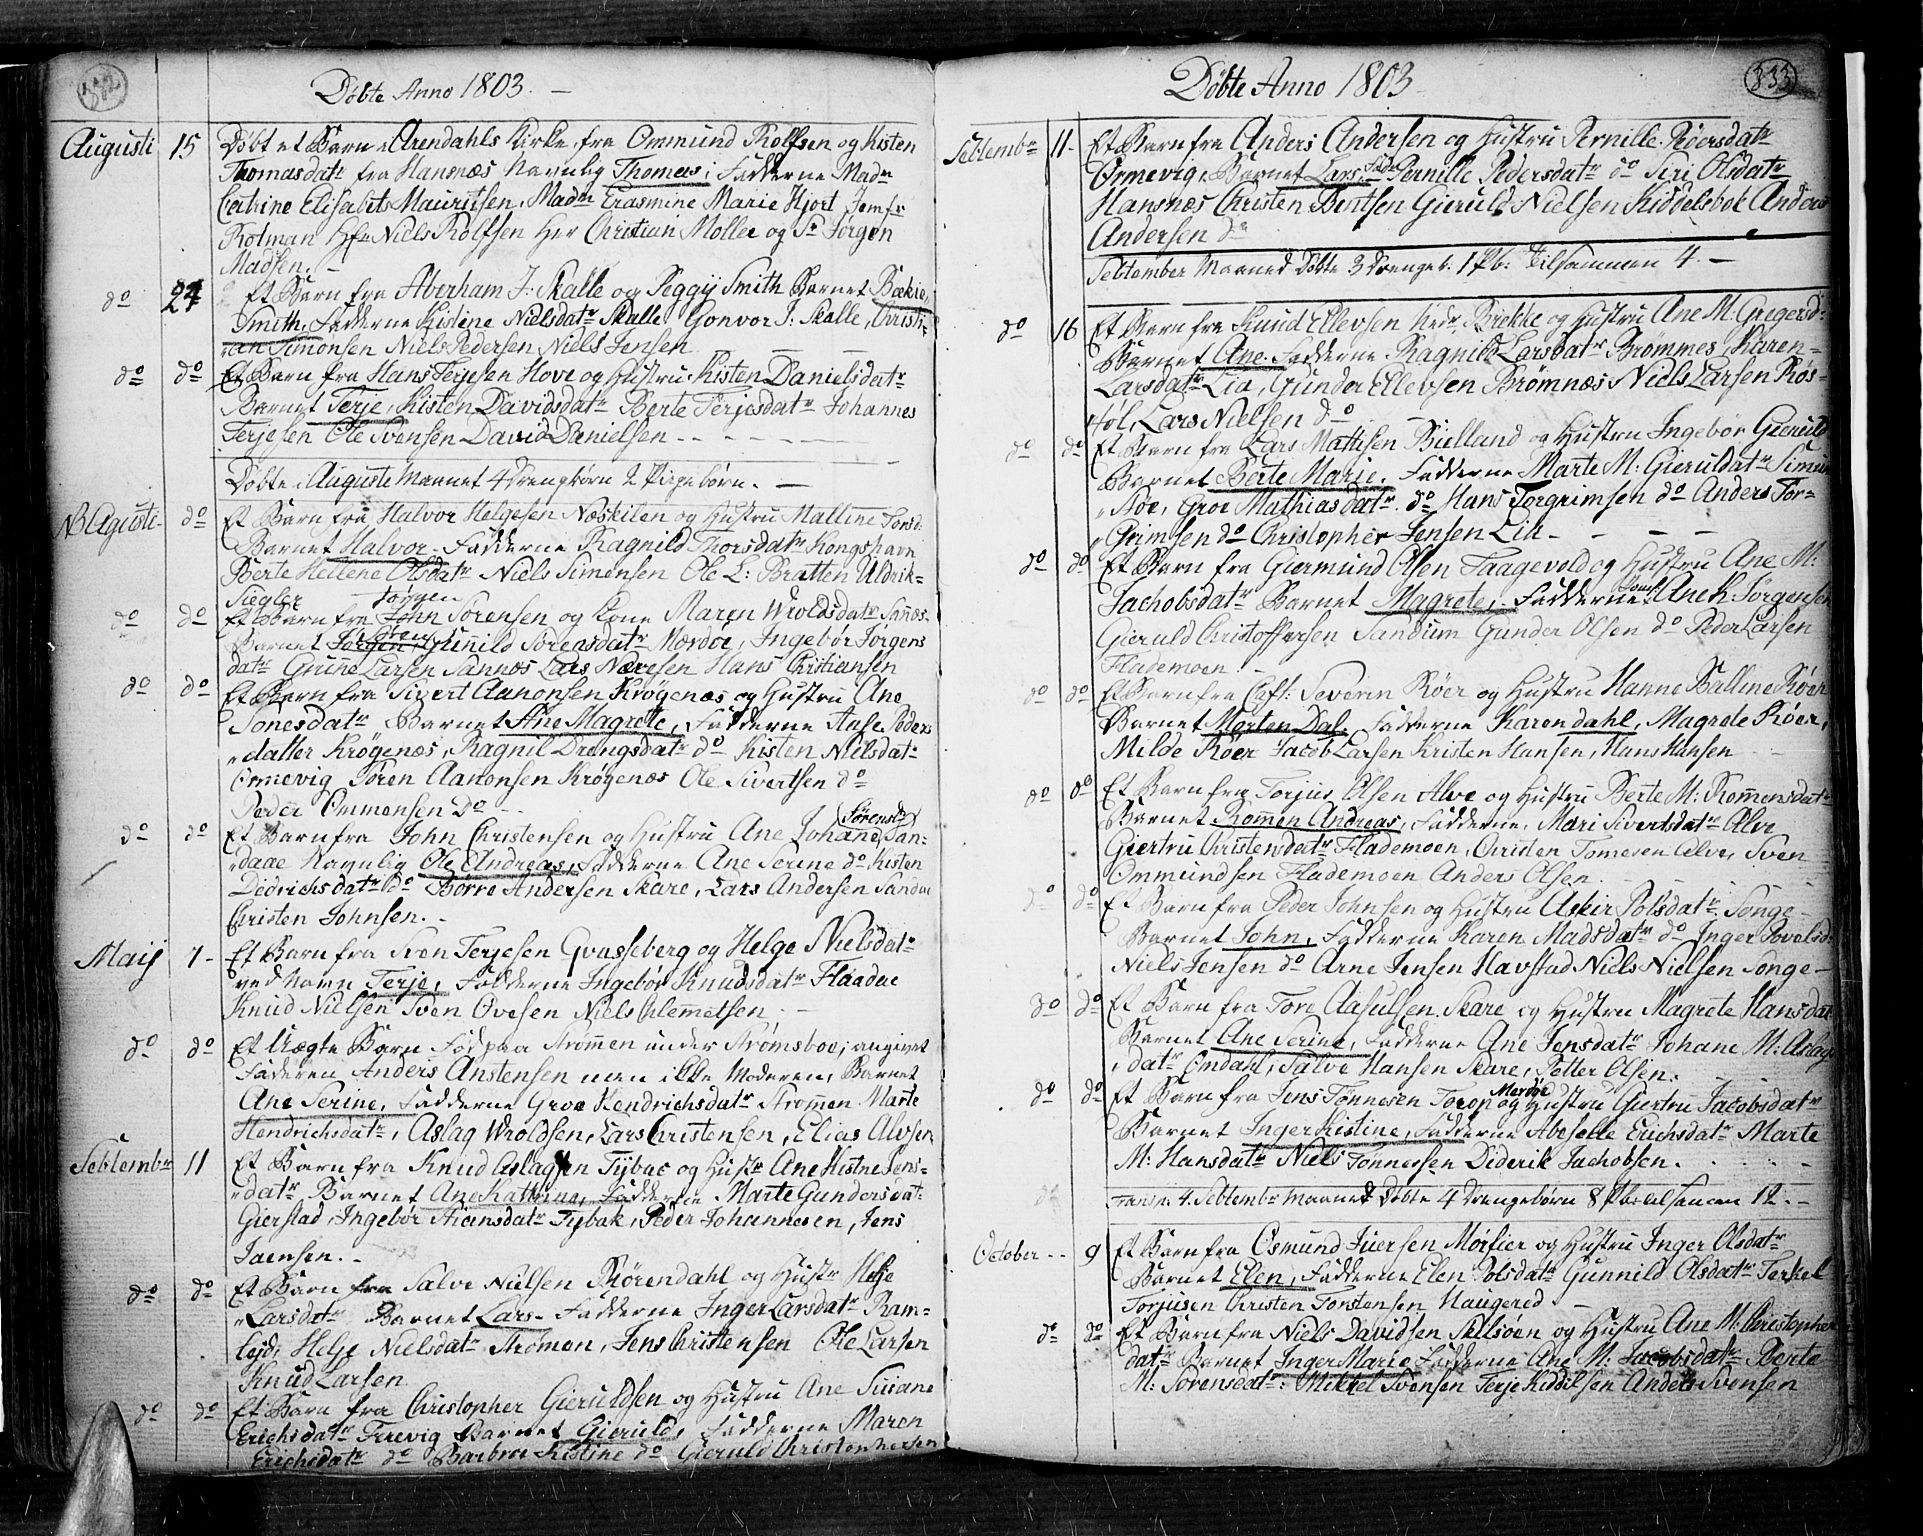 332
Døbte Anno 1803. —
Augusti 15 Døbt et Barn i Arendahls Kirke, fra Ommund Rolfsen og Kisten
Thomasdatr fra Hansnæs Navnlig Thomas; Fadderne Madm
Catrine Elisabets Mauritsen, Madm Erasmine Marie Hjort Jomfr
Rolman Hr Niels Rolfsen Her Christian Møller og Sr Jørgen
Madsen. —
do 24 Et Barn fra Aberham J: Skalle og Peggij Smith Barnet Bækie
Smith, Fadderne Kistene Nielsdatr Skalle, Gonvor J: Skalle, Christi-
an Simonsen Niels Pedersen Niels Jensen
do do Et Barn fra Hans Terjesen Hove og Hustru Kisten Danielsdatr
Barnet Terje, Kisten Davidsdatr Berte Terjesdatr Johannes
Terjesen Ole Svensen David Danielsen - - - - - -
Døbte i Auguste Maanet 4 Drengbørn 2 Pigebørn. —
NB Agusti- do Et Barn fra Halvor Helgesen Næskilen og Hustru Malline Torsd:
Barnet Halvor - Fadderne Ragnild Thorsdatr Kongshavn
Berte Hellene Olsdatr Niels Simonsen Ole L: Bratten Uldrik-
Siegler Jørgen
do do Et Barn fra John Sørensen og Kone Maren Wroldsdatr Sannes-
Søren
Barnet Jørgen, Gunild Sørensdatr Mærdøe, Ingebor Jørgens
datr Grunne Larsen Sannæs Lars Næresen Hans Christiansen
do do Et Barn fra Sivert Aanonsen Krøgenæs og Hustru Ane
Tonesdatr Barnet Ane Magrete, Fadderne Aase Peders
datter Krøgenæs, Ragnil Drengsdatr do Kisten Nielsdatr
Ormevig Søren Aanonsen Krøgenæs Ole Sivertsen do
Peder Ommensen Do
(Sørensd)
do do Et Barn fra John Christensen og Hustru Ane Johane, San-
daae Navnlig Ole Andreas, Fadderne Ane Serine do Kisten
Didrichsdatr Do Børre Andersen Skare, Lars Andersen Sandaa
Christen Johnsen. -
Maij 7- Et Barn fra Sven Terjesen Gvasseberg og Helge Nielsdatr
ved Navn Terje, Fadderne Ingebor Knudsdatr Flaadae
Knud Nielsen Sven Ovesen Niels Clemmetsen. —
do do Et Uægte Barn Fød paa Strømen under Strømsboe, angivet
Faderen Anders Anstensen men ikke Moderen, Barnet
Ane Serine, Fadderne Groe Hendrichsdatr Strømen Marte
Hendrichsdatr, Aslag Wroldsen, Lars Christensen, Elias Alvsen
Sebtembr 11 Et Barn fra Knud Aslagsen Tÿbac og Hustr Ane Kistne Jens-
datr Barnet Ane Kathrine, Fadderne Marte Gundersdat-
Gierstad, Ingebør Aiansdatr Tybak, Peder Johannesen, Jens
Jaensen. -
do do Et Barn fra Salve Nielsen Rørendahl og Hustr Helje
Larsdatr Barnet Lars - Fadderne Inger Larsdatr Ram-
leid, Helje Nielsdatr Strømen, Jens Christensen Ole Larsen
Knud Larsen
do do Et Barn fra Christopher Gieruldsen og Hustru Ane Susane
Erichsdatr Ferevig Barnet Gieruld, Fadderne Maren
Erichsdatr do Barbroe Kistine do Gieruld Christophersen
333
Døbte Anno 1803
Sebtembr 11- Et Barn fra Anders Andersen og Hustru Pernille Pedersdatr
Ormevig, Barnet Lars, Fadr Pernille Pedersdatr do Siri Olsdatr
Hansnæs Christen Bentsen Gieruld Nielsen Kiddelsboe Anders
Andersen do
Sebtember Maaned Døbte 3 Drenge b: 1 Pb: tilsammen 4. —
do 16 Et Barn fra Knud Ellevsen Brekke og Hustru Ane M: Gregersd:
Barnet Ane. Fadderne Ragnild Larsdatr Brømmes Karen-
Larsdatr Lia, Gunder Ellevsen Brømnæs Niels Larsen Ros-
Hol, Lars Nielsen do
do do Et Barn fra Lars Mathisen Bielland og Hustru Ingebor Gieruld
Barnet Berte Marie. Fadderne Marte M: Gieruldatr Simun
støe, Groe Mathiasdatr. do Hans Torgrimsen do Anders Tor-
Grimsen do Christopher Jensen Lia - - - -
do do Et Barn fra Giermund Olsen Faagevold og Hustru Ane M:
Jachobsdatr Barnet Magrete, Fadderne Ane K. Jørgensen
Gieruld Christoffersen Sandum Gunder Olsen do Peder Larsen
Flademoen —
do do Et Barn fra Caft: Severin Røer og Hustru Hanne Balline Røer
Barnet Morten Dal, Fadderne Karen dahl, Magrete Røer,
Milde Røer Jacob Larsen Kristen Hansen, Hans Hansen
do do Et Barn fra Torjus Olsen Alve og Hustru Berte M: Romensdatr
Barnet Romen Andreas, Fadderne, Mari Sivertsdatr Alve
Giertru Christensdatr Flademoen, Christen Tomesen Alve, Sven
Ommundsen Flademoen Anders Olsen.
do do Et Barn fra Peder Johnsen og Hustru Askier Polsdatr. Songe-
Barnet John, Fadderne Karen Madsdatr do Inger Povelsd:
Niels Jensen do Arne Jensen Havstad Niels Nielsen Songe -
do do Et Barn fra Tore Aasulsen Skare og Hustru Magrete Hansdat
Barnet Ane Serine, Fadderne Ane Jensdatr Johane M: Aslags
datr Omdahl, Salve Hansen Skare, Petter Olsen.
Merdøe
do do Et Barn fra Jens Tønnesen Torop og Hustru Giertru Jacobsdatr
Barnet Inger Kistine, Fadderne Abeselle Erichsdatr Marte
M: Hansdatr Niels Tonnessen Diderik Jachobsen.
do Transp: 4. Sebtembr Maanet Døbte 4 Drengebørn 8 Pb: tilsamen 12. —
October - - 9 Et Barn fra Osmund Iuersen Mørfier og Hustru Inger Olsdatr
Barnet Elen, Fadderne Elen Polsdatr Gunnild Olsdatr Terkel
Torjusen Christen Torstensen Haugered. —
do do Et Barn fra Niels Davidsen Skilsøen og Hustru Ane M: Christopher
datr Barnet Inger Marie Fadderne Ane M: Jacobsdatr Berte
M: Sørensdatr: Mikkel Svensen Terje Kiddilsen Anders Svensen